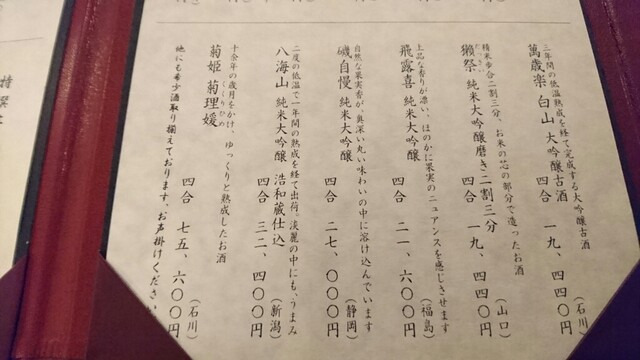 三年間の低温熟成を経て完成する大吟醸古酒
萬歳楽 白山 大吟醸古酒 四合 一九、四四〇円
(石川)
精米歩合二割三分、お米の芯の部分で造ったお酒
獺祭 純米大吟醸磨き二割三分 四合 一九、四四〇円
だっさい
(山口)
上品な香りが漂い、ほのかに果実のニュアンスを感じさせます
飛露喜 純米大吟醸 四合 二一、六〇〇円
(福島)
自然な果実香が、奥深い丸い味わいの中に溶け込んでいます
磯自慢 純米大吟醸 四合 二七、〇〇〇円
(静岡)
二度の低温で一年間の熟成を経て出荷。淡麗の中にも、うまみ
八海山 純米大吟醸 浩和蔵仕込 四合 三二、四〇〇円
(新潟)
十余年の歳月をかけ、ゆっくりと熟成したお酒
菊姫 菊理媛 四合 七五、六〇〇円
くくりひめ
(石川)
他にも希少酒取り揃えております、お声掛けください
特撰